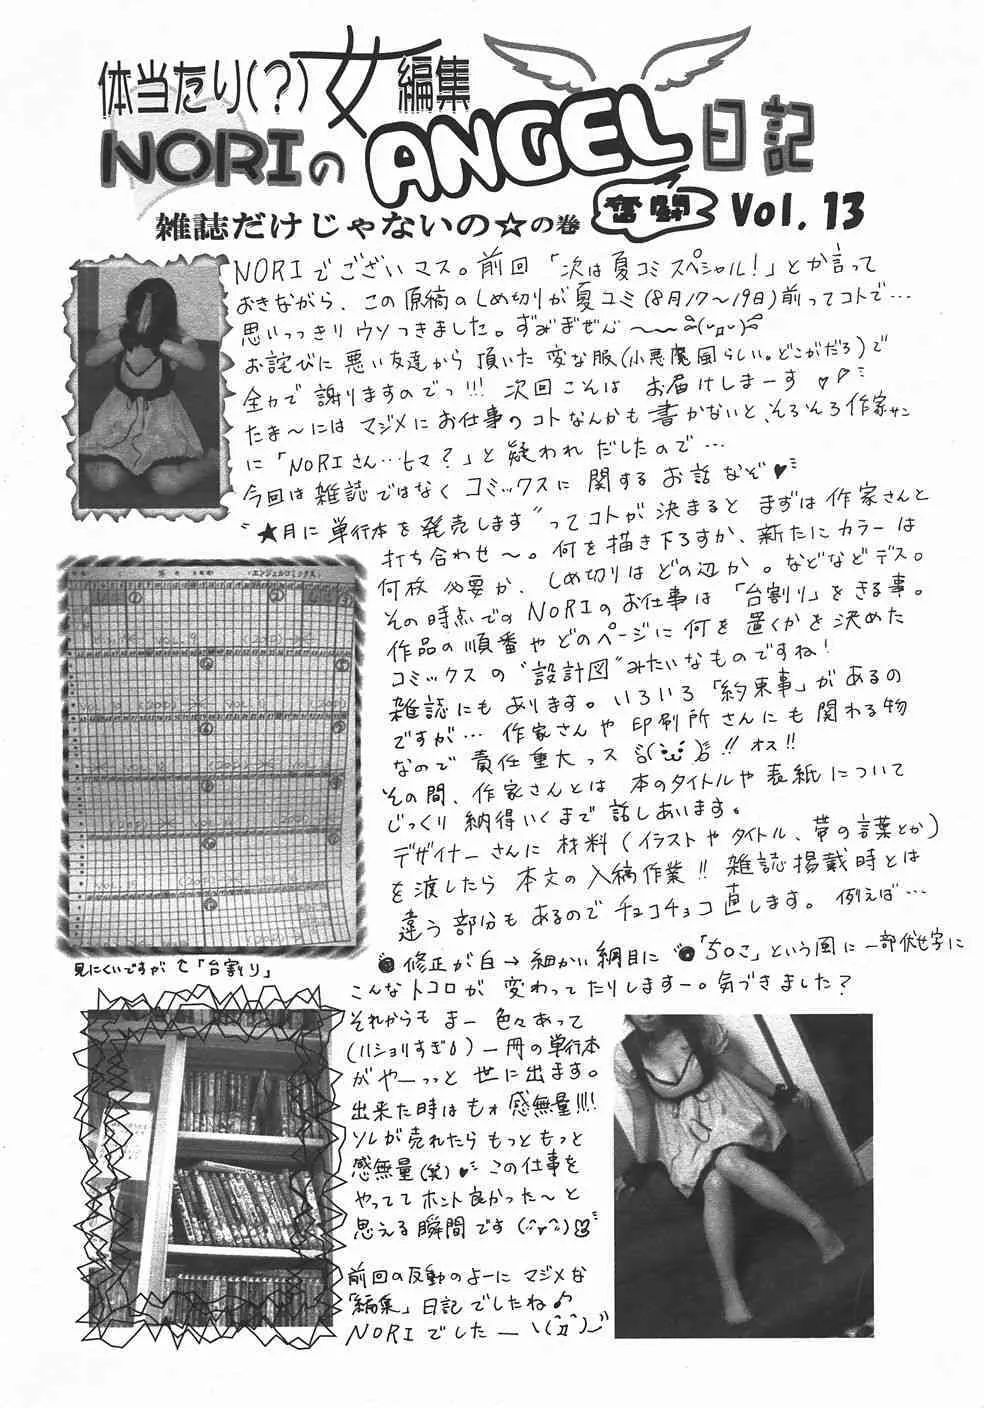 体当たり(?)女編集
NORIのANGEL日記
奮闘 Vol. 13
雑誌だけじゃないの☆の巻
NORIでございマス。前回「次は夏コミスペシャル!」とか言って
おきながら、この原稿のしめ切りが夏コミ(8月17〜19日)前ってコトで…
思いっきりウソつきました。ずみまぜん〜〜
お詫びに悪い友達から頂いた変な服(小悪魔風らしい。どこがだろ)で
全力で謝りますのでっ!!! 次回こそはお届けしまーす
たま〜にはマジメにお仕事のコトなんかも書かないと、そろそろ作家サン
に「NORIさん…ヒマ?」と疑われだしたので…
今回は雑誌ではなくコミックスに関するお話なぞ♥
"★月に単行本を発売します"ってコトが決まるとまずは作家さんと
打ち合わせ〜。何を描き下ろすか、新たにカラーは
何枚必要か、しめ切りはどの辺か。などなどデス。
その時点でのNORIのお仕事は「台割り」をきる事。
作品の順番やどのページに何を置くかを決めた
コミックスの"設計図"みたいなものですね!
雑誌にもあります。いろいろ「約束事」があるの
ですが…作家さんや印刷所さんにも関わる物
なので責任重大っス!! オス!!
その間、作家さんとは本のタイトルや表紙について
じっくり納得いくまで話しあいます。
デザイナーさんに材料(イラストやタイトル、帯の言葉とか)
を渡したら本文の入稿作業!! 雑誌掲載時とは
違う部分もあるのでチョコチョコ直します。例えば…
修正が白→細かい網目に 「ち○こ」という風に一部伏せ字に
こんなトコロが変わってたりしますー。気づきました?
見にくいですが↑「台割り」
それからもまー色々あって
(ハショりすぎ)一冊の単行本
がやーっっと世に出ます。
出来た時はもォ感無量!!!!
ソレが売れたらもっともっと
感無量(笑)♥この仕事を
やっててホント良かった〜と
思える瞬間です
前回の反動のよーにマジメな
「編集」日記でしたね♪
NORIでした―